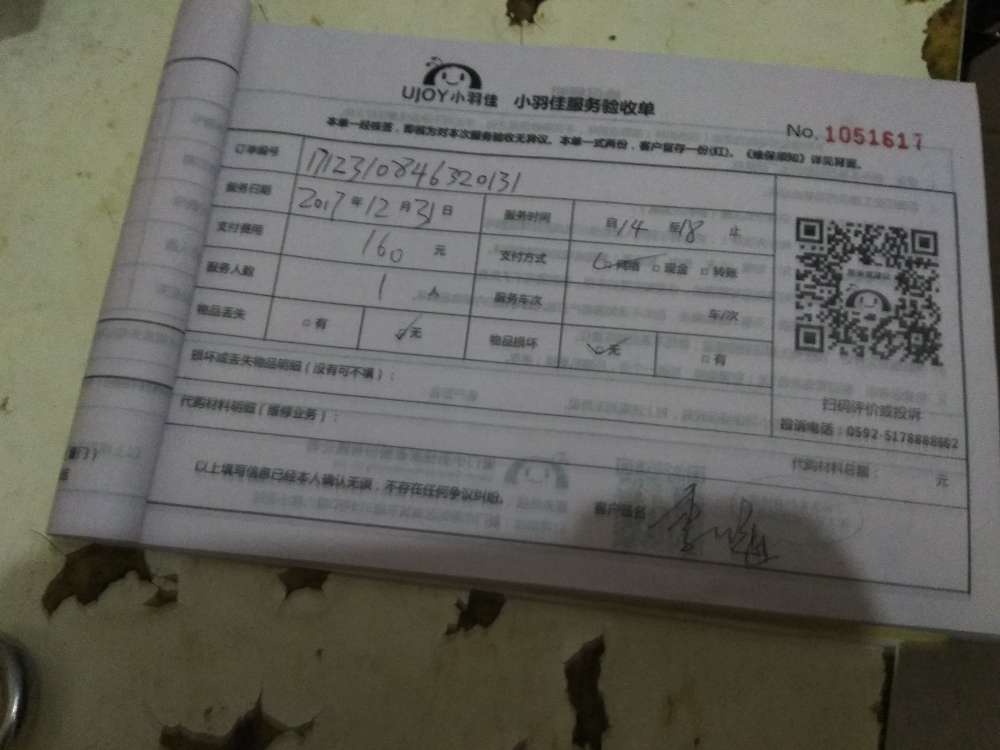 UJOY小羽佳 小羽佳服务验收单
No. 1051617
本单一经签，即视为对本次服务验收无异议。本单一式两份，客户留存一份(红)。《维保须知》详见背面。
订单编号 1712310846320131
服务日期 2017年12月31日 服务时间 自14至18止
支付费用 160元 支付方式 网络 □现金 □转账
服务人数 1人 服务车次 车/次
物品丢失 □有 ✓无 物品损坏 ✓无 □有
损坏或丢失物品明细（没有可不填）：
扫码评价或投诉
投诉电话：0592-5178888662
代购材料明细（维修业务）：
代购材料总额： 元
以上填写信息已经本人确认无误，不存在任何争议纠纷。
客户签名